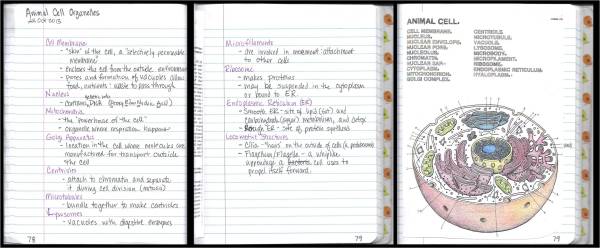 Animal Cell Organelles
Cell Membrane
- "skin" of the cell, a "selectively permeable
membrane"
- Encloses the cell from the outside environment
- pores and formation of vacuoles allow
food, nutrients, waste to pass through
Nucleus
- contains DNA
Mitochondria
- the "powerhouse of the cell"
- organelle where respiration happens
Golgi Apparatus
- location in the cell where molecules are
manufactured for transport outside
the cell
Centrioles
- attach to chromatin and separate
it during cell division (mitosis)
Microtubules
- bundle together to make centrioles
Lysosomes
- vacuoles with digestive enzymes
78
Microfilaments
- are involved in movement/attachment
to other cells
Ribosome
- makes proteins
- may be suspended in the cytoplasm
or bound to ER
Endoplasmic Reticulum (ER)
- Smooth ER - site of lipid (fat) and
carbohydrate (sugar) metabolism, and detox
- Rough ER - site of protein synthesis
Locomotive Structures
- Cilia - "hairs" on the outside of cells
- Flagellum/Flagella - a whiplike
appendage a cell uses to
propel itself forward.
79
ANIMAL CELL.
CELL MEMBRANE.
NUCLEUS.
NUCLEAR ENVELOPE.
NUCLEAR PORE.
NUCLEOLUS.
CHROMATIN.
NUCLEAR SAP.
CYTOPLASM.
MITOCHONDRION.
GOLGI COMPLEX.
CENTRIOLE.
MICROTUBULE.
VACUOLE.
LYSOSOME.
MICROBODY.
MICROFILAMENT.
RIBOSOME.
ENDOPLASMIC RETICULUM.
HYALOPLASM.
79